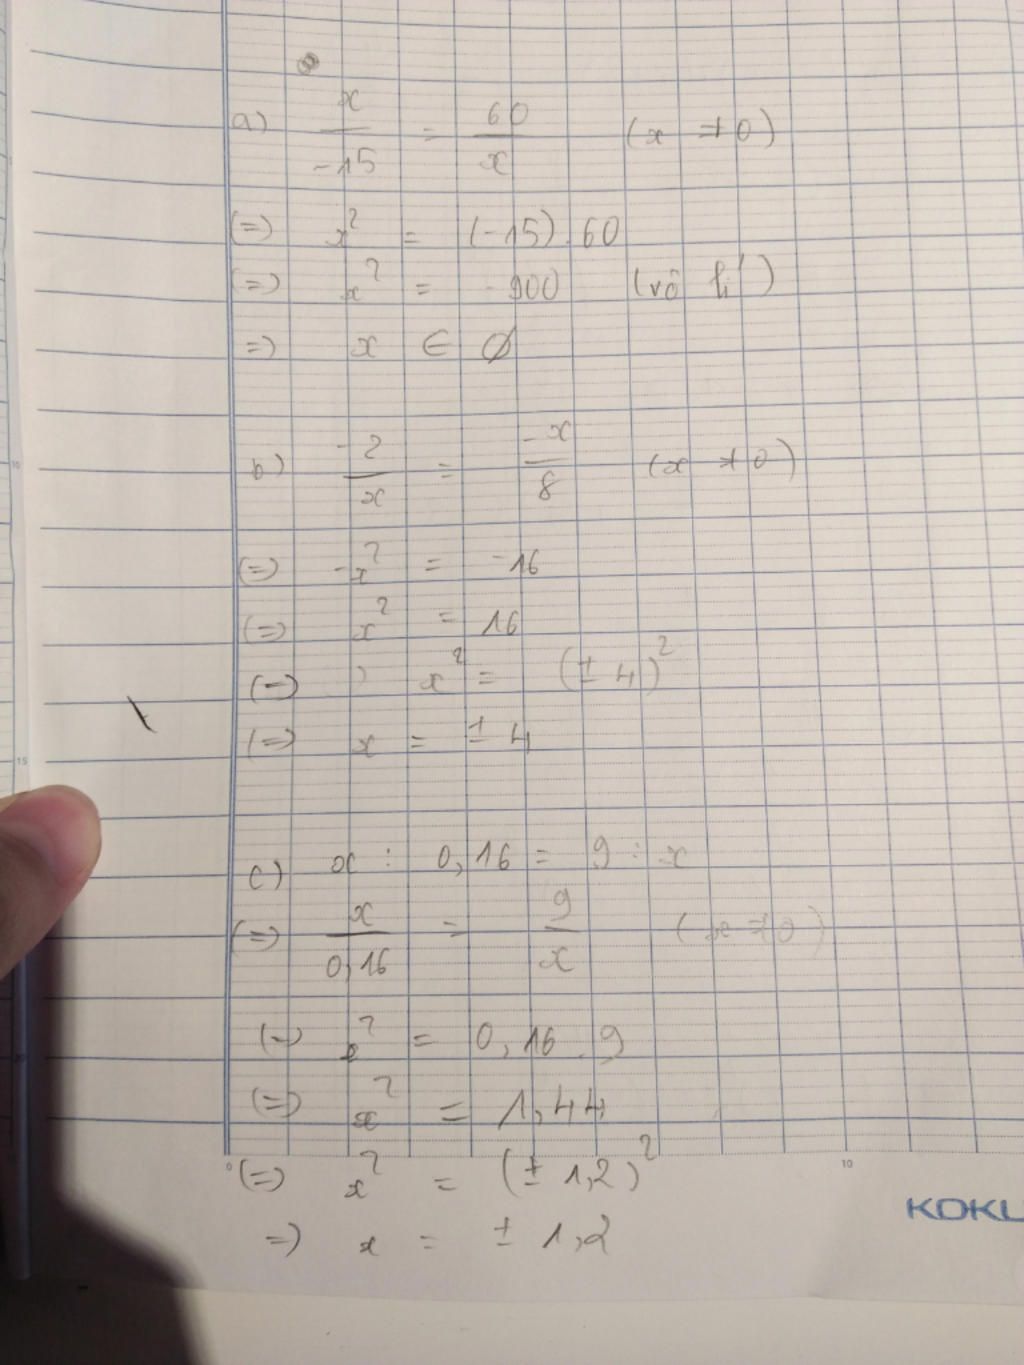 a) x/-15 = 60/x (x ≠ 0)
(=) x² = (-15).60
(=) x² = -900 (vô lí)
=) x ∈ Ø
b) -2/x = -x/8 (x ≠ 0)
(=) -x² = -16
(=) x² = 16
(=) x² = (± 4)²
(=) x = ± 4
c) x : 0,16 = 9 : x
(=) x/0,16 = 9/x (x ≠ 0)
(=) x² = 0,16.9
(=) x² = 1,44
(=) x² = (± 1,2)²
=) x = ± 1,2
10
15
20
0
10